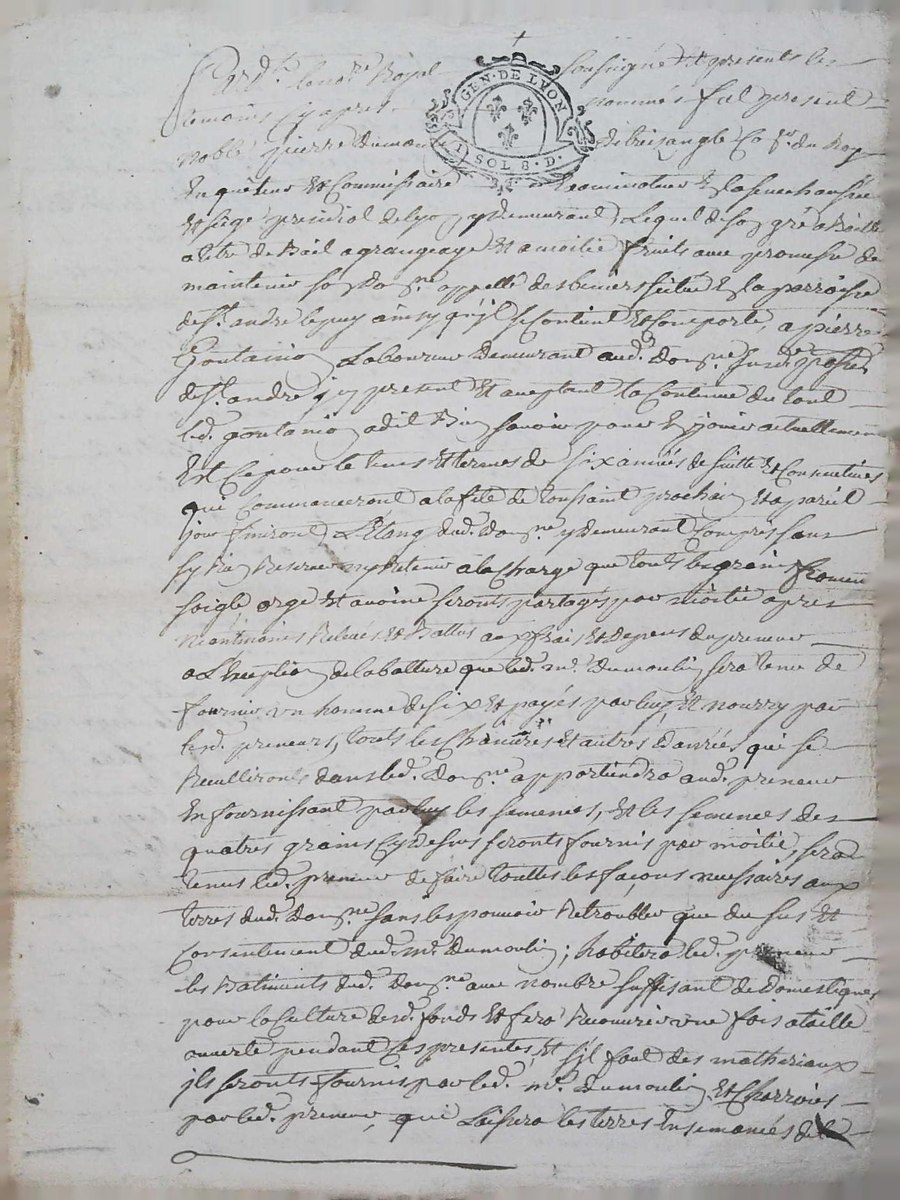 Pard.t le no.re Royal soussigné Et presents les
temoins Cy apres nommés fut present
GEN · DE LYON
1 SOL 8 · D ·
noble pierre dumou de brisangle Co.er du Roy
Enquêteur Et Commissaire Examinateur En la senechaussée
Et siege presidial de lyon y demeurant Lequel de son gré a Baillé
a titre de Bail a grangeage Et a moitié fruits avec promesse de
maintenir son Do.ne appellé des situé En la parroisse
de S.t andré le puy ainsy qu'il se Contient Et Comporte, a pierre
Laboureur Demeurant aud. Do.ne sud. psse
de S.t andré jcy present Et aceptant la Contenue du tout
led. a dit Bien savoir pour En jouir actuellement
Est Ce pour le tems Et termes de six années de suitte Et Consecutives
qui Commanceront a la fête de toussaint prochain Et a pareil
jour finiront, L'Etang dud. Do.ne y demeurant Compris sans
sy Rien Reserver ny Retenir a la Charge que touts les grains froment
soigle orge Et avoine seronts partagés par moitié apres
néantmoins Relevés Et Battus aux frais Et depens du preneur
a L'Exception de la batture que led. m.r dumoulin sera tenu de
fournir un homme de six Et payés par luy, Et nourry par
led. preneur, touts les Chanvres Et autres Danrées qui se
Recuillironts dans led. Do.ne appartiendra aud. preneur
En fournissant par luy les semences, Et les semences des
quatres grains Cy dessus seronts fournis par moitié, sera
tenus led. preneur de faire touttes les façons necessaires aux
terres dud. Do.ne sans les pouvoir Retroubler que du sus Et
Consentement dud. m.r dumoulin ; habitera led. preneur
les Batiments dud. Do.ne avec nombre suffisant de Domestiques
pour la Culture desd. fonds Et fera Recouvrir une fois a taille
ouverte pendant Ces presentes, Et s'jl faut des matheriaux
jls seronts fournis par led. m.r dumoulin Et Charroiés
par led. preneur, qui Laissera les terres Ensemancés de